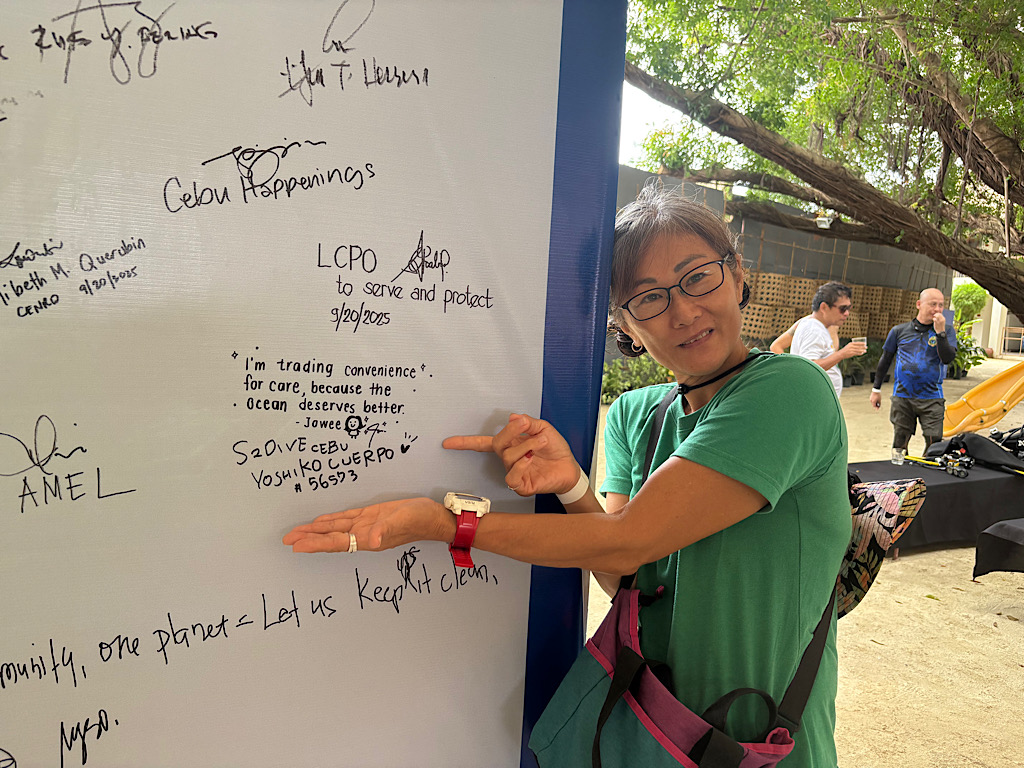 T. Herrera
Cebu Happenings
LCPO
to serve and protect
9/20/2025
M. Querubin
CENRO 9/20/2025
I'm trading convenience
for care, because the
Ocean deserves better.
- Jowee
S2DIVE CEBU
YOSHIKO CUERPO
# 56573
AMEL
munity, one planet = Let us keep it clean.